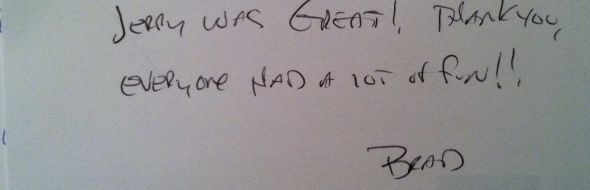 Jerry was Great! Thank you,
everyone had a lot of fun!!
Brad